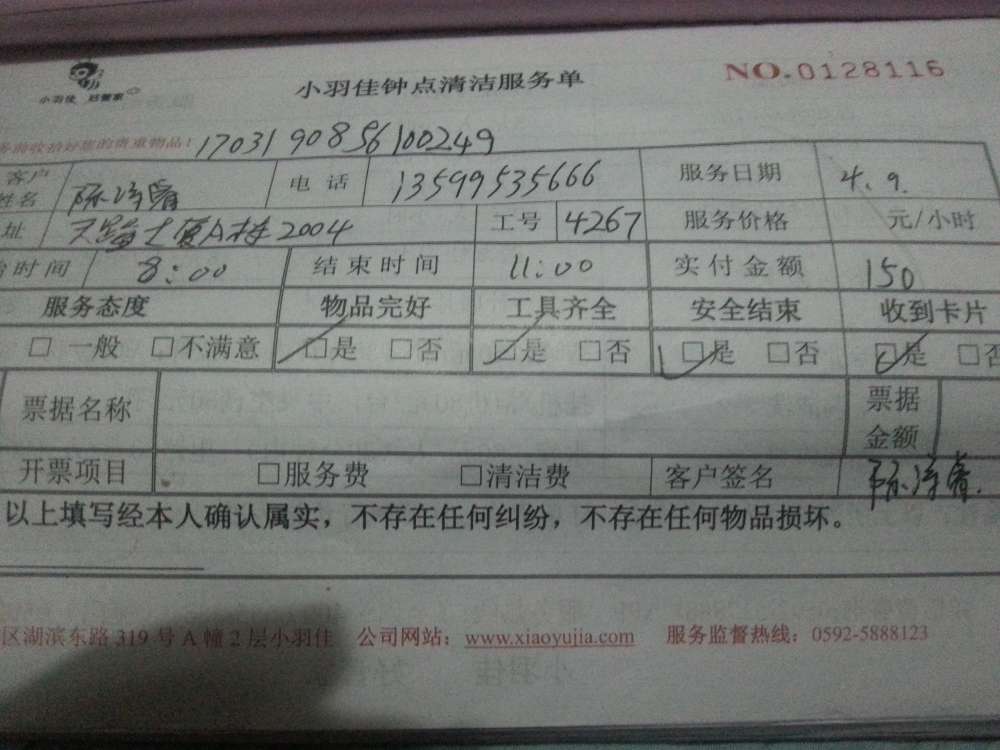 小羽佳 好管家
小羽佳钟点清洁服务单
NO.0128116
务前收拾好您的贵重物品! 1703190856100249
客户姓名 电话 13599535666 服务日期 4.9.
址 A栋2004 工号 4267 服务价格 元/小时
时间 8:00 结束时间 11:00 实付金额 150
服务态度 物品完好 工具齐全 安全结束 收到卡片
□ 一般 □不满意 □是 □否 □是 □否 □是 □否 □是 □否
票据名称 票据金额
开票项目 □服务费 □清洁费 客户签名
以上填写经本人确认属实，不存在任何纠纷，不存在任何物品损坏。
区湖滨东路319号A幢2层小羽佳 公司网站：www.xiaoyujia.com 服务监督热线：0592-5888123